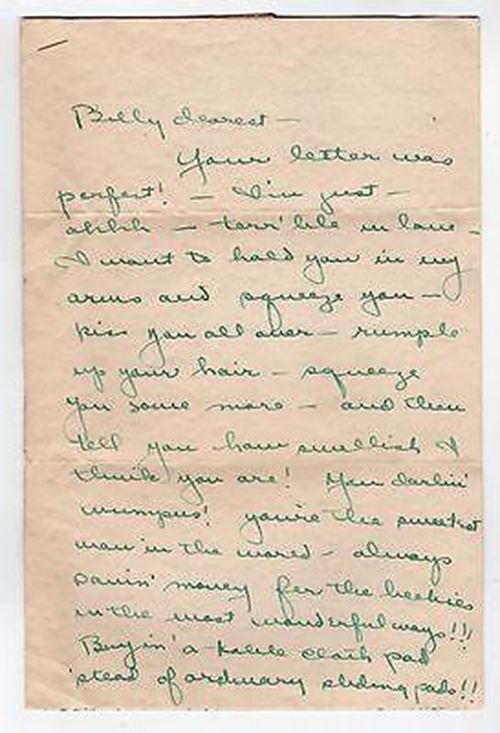 Billy dearest —
Your letter was
perfect! — I'm just —
ahhh — terr'ble in love -
I want to hold you in my
arms and squeeze you —
kiss you all over — rumple
up your hair — squeeze
you some more — and then
tell you how swellish I
think you are! You darlin'
wumpus! you're the sweetest
man in the world — always
savin' money for the
in the most wonderful ways!!!
Buyin' a table cloth pad
'stead of ordinary sliding pads!!